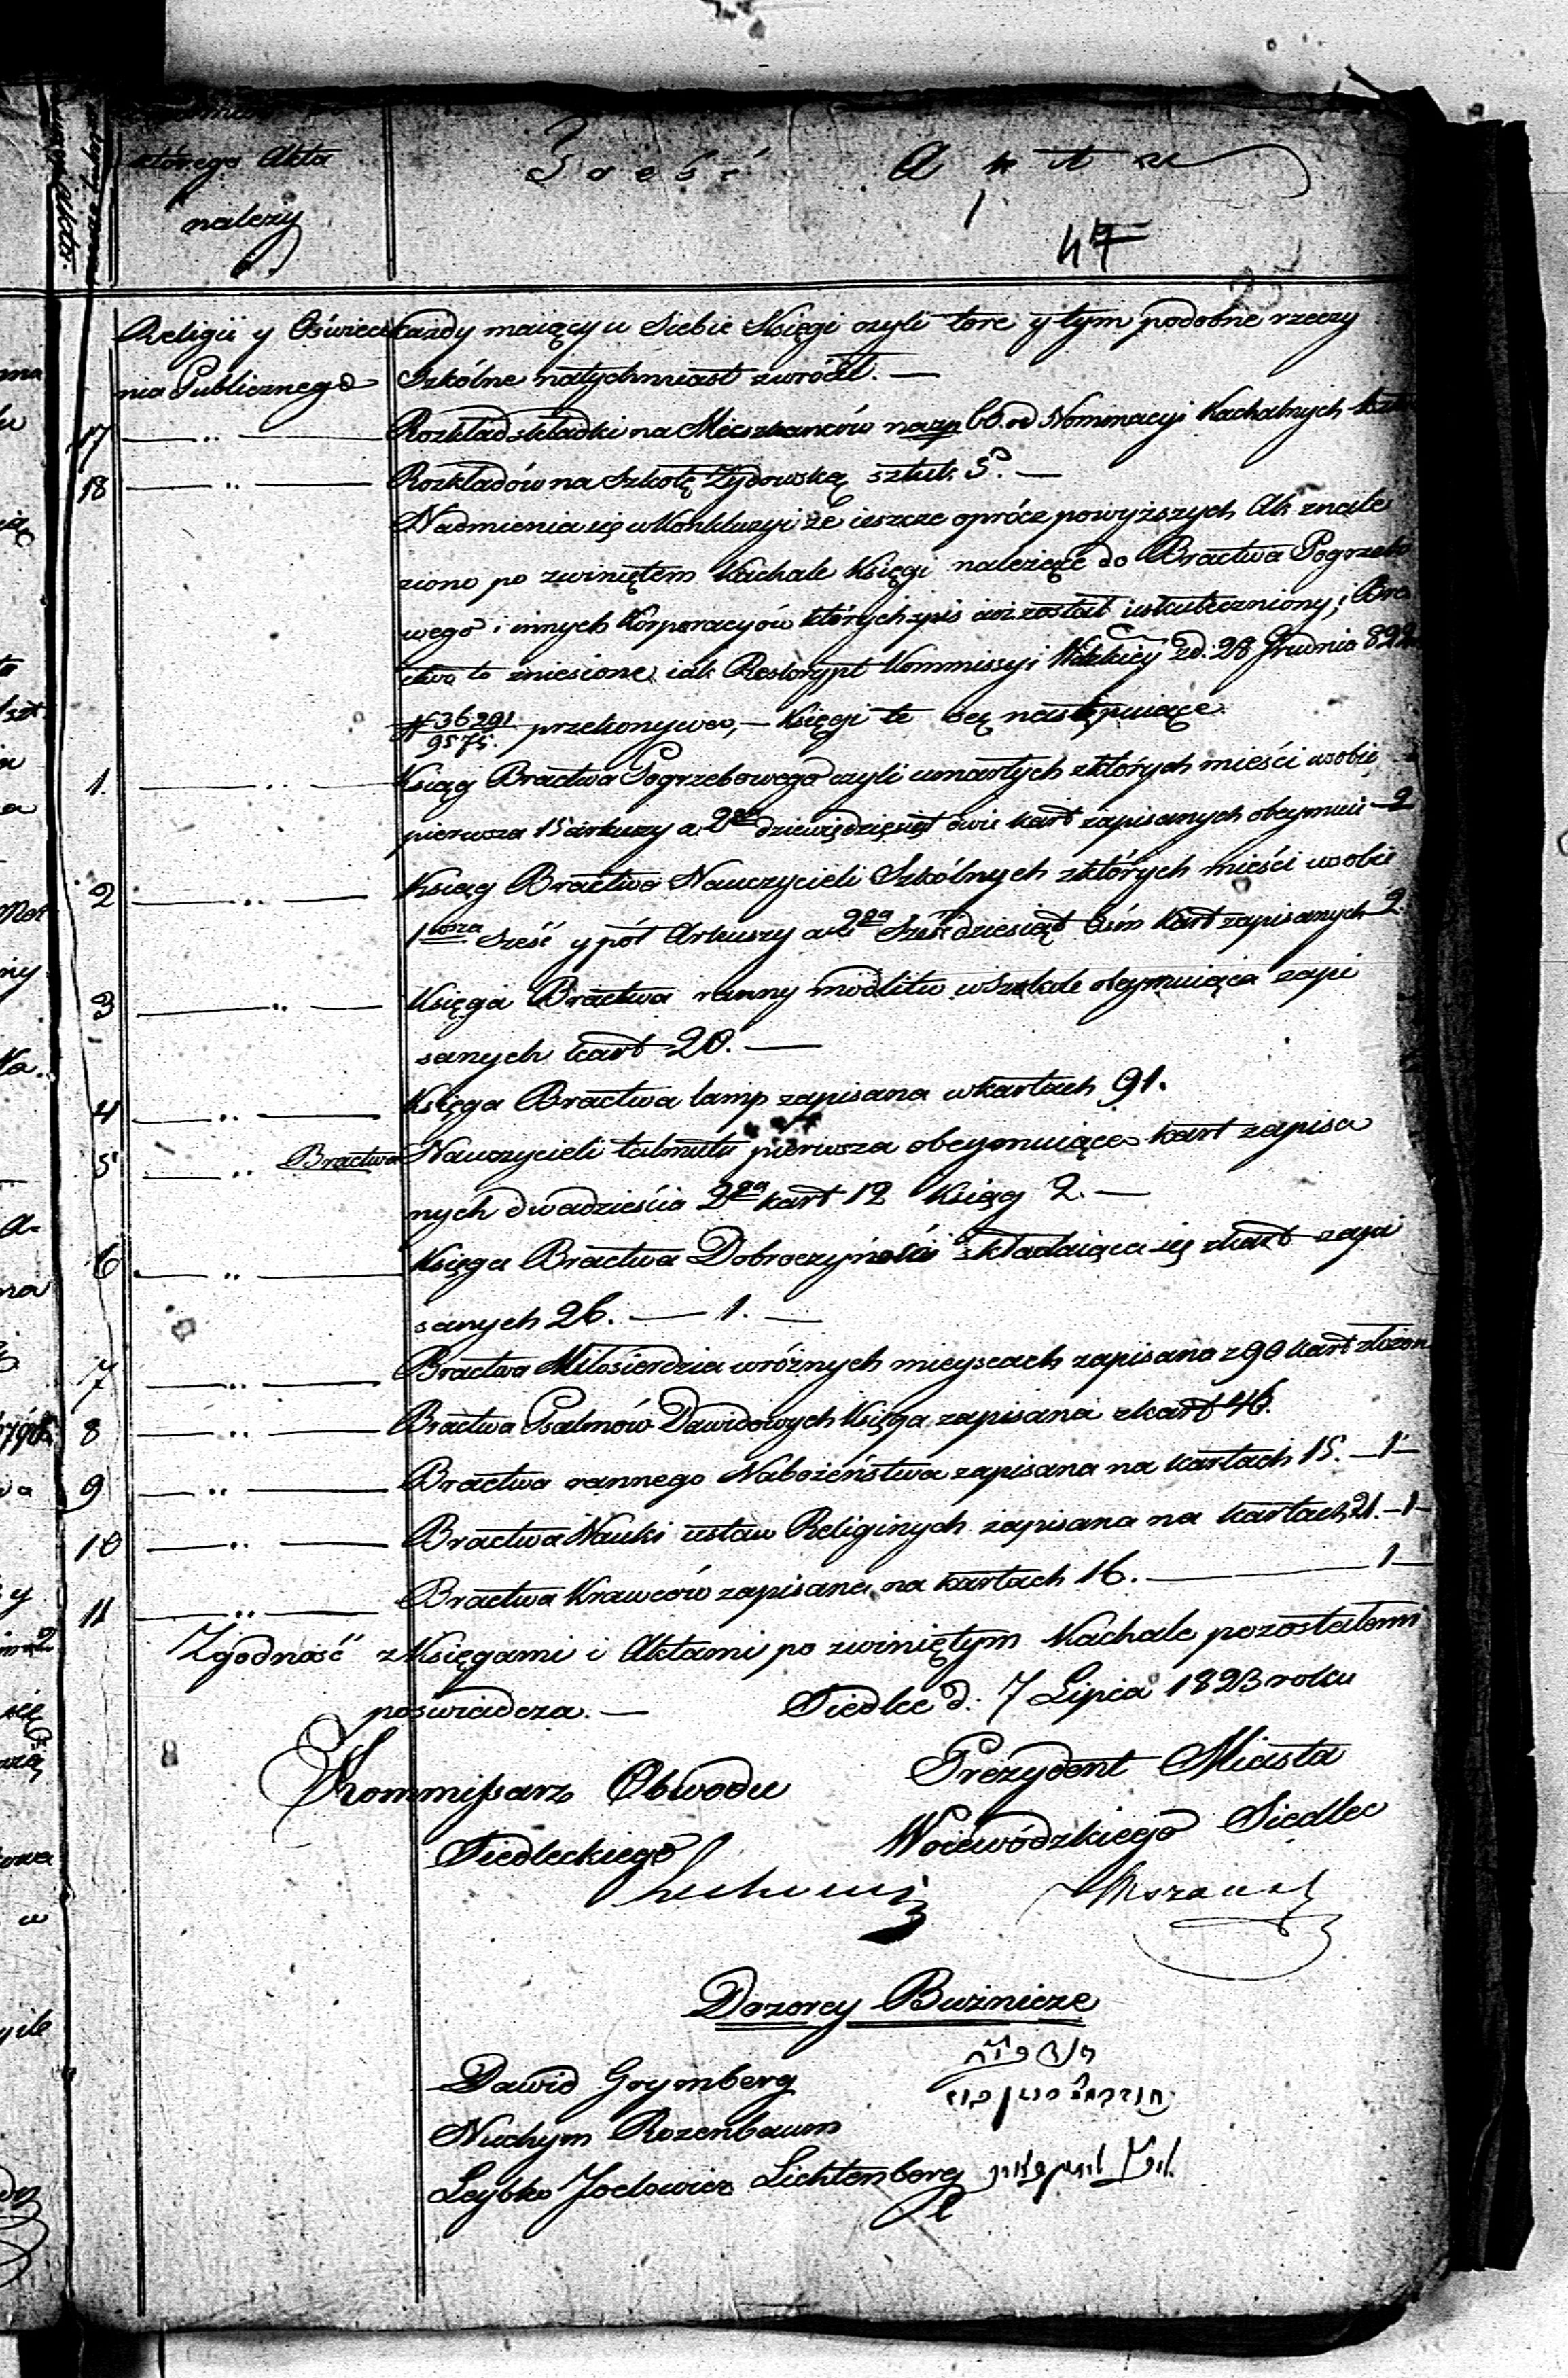 którego Akta
należy
Treść Aktu
47
Religii y Oświece każdy maiący u Siebie Księgi czyli tore y tym podobne rzeczy
nia Publicznego Szkólne natychmiast zwrócił. —
17 — „ — Rozkład składki na Mieszkańców na zp 60. od Nominacyi Kachalnych
18 — „ — Rozkładów na Szkołę Żydowską sztuk 5. —
Nadmienia się w Konkluzyi że ieszcze oprócz powyższych Ak znale
ziono po zwiniętem Kachale Księgi należące do Bractwa Pogrzebo
wego i innych Korporacyów których spis iaki został uskuteczniony; Bra
ctwa to zniesione iak Reskrypt Kommissyi Wdzkiey z d. 28 Grudnia 822
N 36291/9575. przekonywa, — Księgi te są następuiące.
1 — „ — Ksiąg Bractwa Pogrzebowego czyli umarłych z których mieści w sobie
pierwsza 15 arkuszy a 2ga dziewiędziesiąt dwie kart zapisanych obeymuie — 2
2 — „ — Ksiąg Bractwa Nauczycieli Szkólnych z których mieści w sobie
1wsza Sześć y pół Arkuszy a 2ga Sześdziesiąt Ósm Kart zapisanych 2.
3 — „ — Księga Bractwa ranny modlitw w Szkole obeymuiąca zapi
sanych kart 20. —
4 — „ — Księga Bractwa lamp zapisana w kartach 91.
5 — „ Bractwa Nauczycieli talmutu pierwsza obeymuiąca kart zapisa
nych dwadzieścia 2ga kart 12 Ksiąg 2. —
6 — „ — Księga Bractwa Dobroczyńości składaiąca się z kart zapi
sanych 26. — 1. —
7 — „ — Bractwa Miłosierdzia w różnych mieyscach zapisana z 90 kart złożon
8 — „ — Bractwa Psalmów Dawidowych Księga zapisana z kart 46.
9 — „ — Bractwa rannego Nabożeństwa zapisana na kartach 15. — 1 —
10 — „ — Bractwa Nauki ustaw Religinych zapisana na kartach 21. — 1 —
11 — „ — Bractwa Krawców zapisana na kartach 16. — 1 —
Zgodność z Księgami i Aktami po zwiniętym Kachale pozostałemi
poświadcza. — Siedlce d. 7 Lipca 1823 roku
Kommissarz Obwodu Prezydent Miasta
Siedleckiego Woiewódzkiego Siedlec
Dozorcy Bużnicze
Dawid Grynberg
Nuchym Rozenbaum
Leybko Joclowicz Lichtenberg